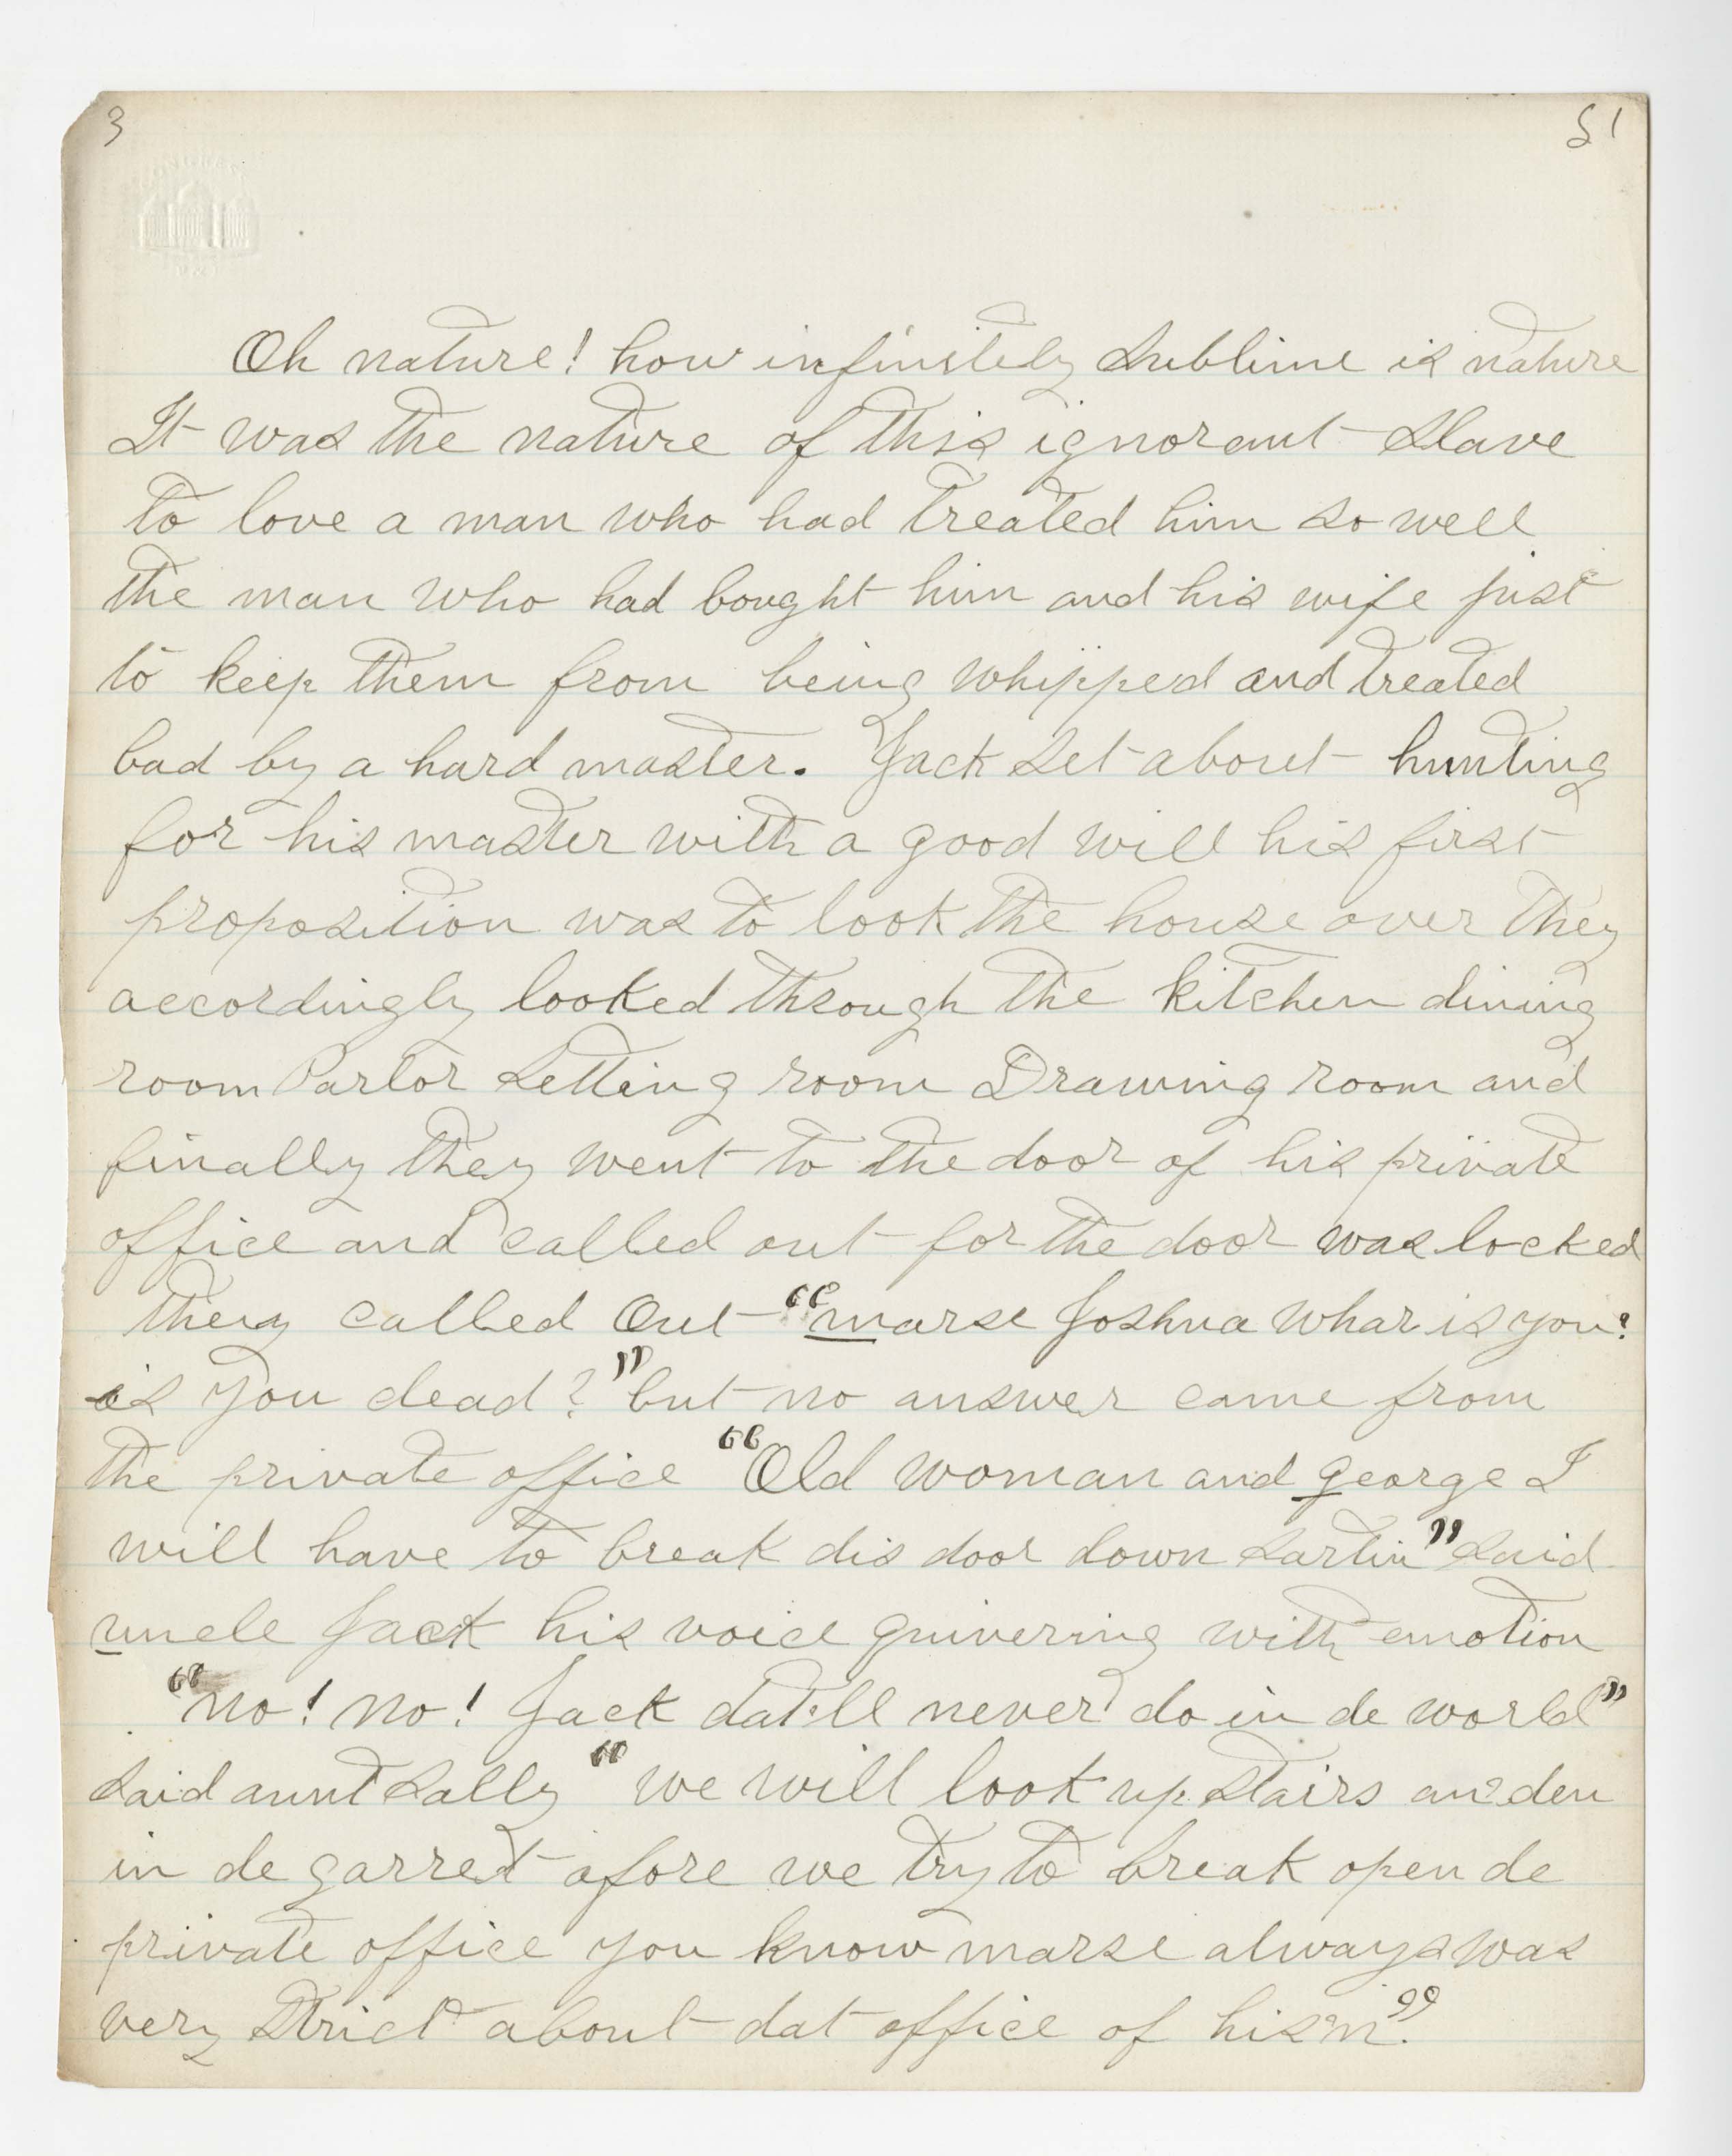 3
51
Oh nature! how infinitely sublime is nature
It was the nature of this ignorant slave
to love a man who had treated him so well
the man who had bought him and his wife just
to keep them from being whipped and treated
bad by a hard master. Jack set about hunting
for his master with a good will his first
proposition was to look the house over they
accordingly looked through the kitchen dining
room Parlor setting room Drawing room and
finally they went to the door of his private
office and called out for the door was locked
they called out "marse Joshua whar is you?
is you dead?" but no answer came from
the private office "Old woman and george I
will have to break dis door down sartin" said
uncle Jack his voice quivering with emotion
"no! no! Jack dat'll never do in de world"
said aunt sally "we will look up stairs an den
in de garret afore we try to break open de
private office you know marse always was
very strict about dat office of his'n."